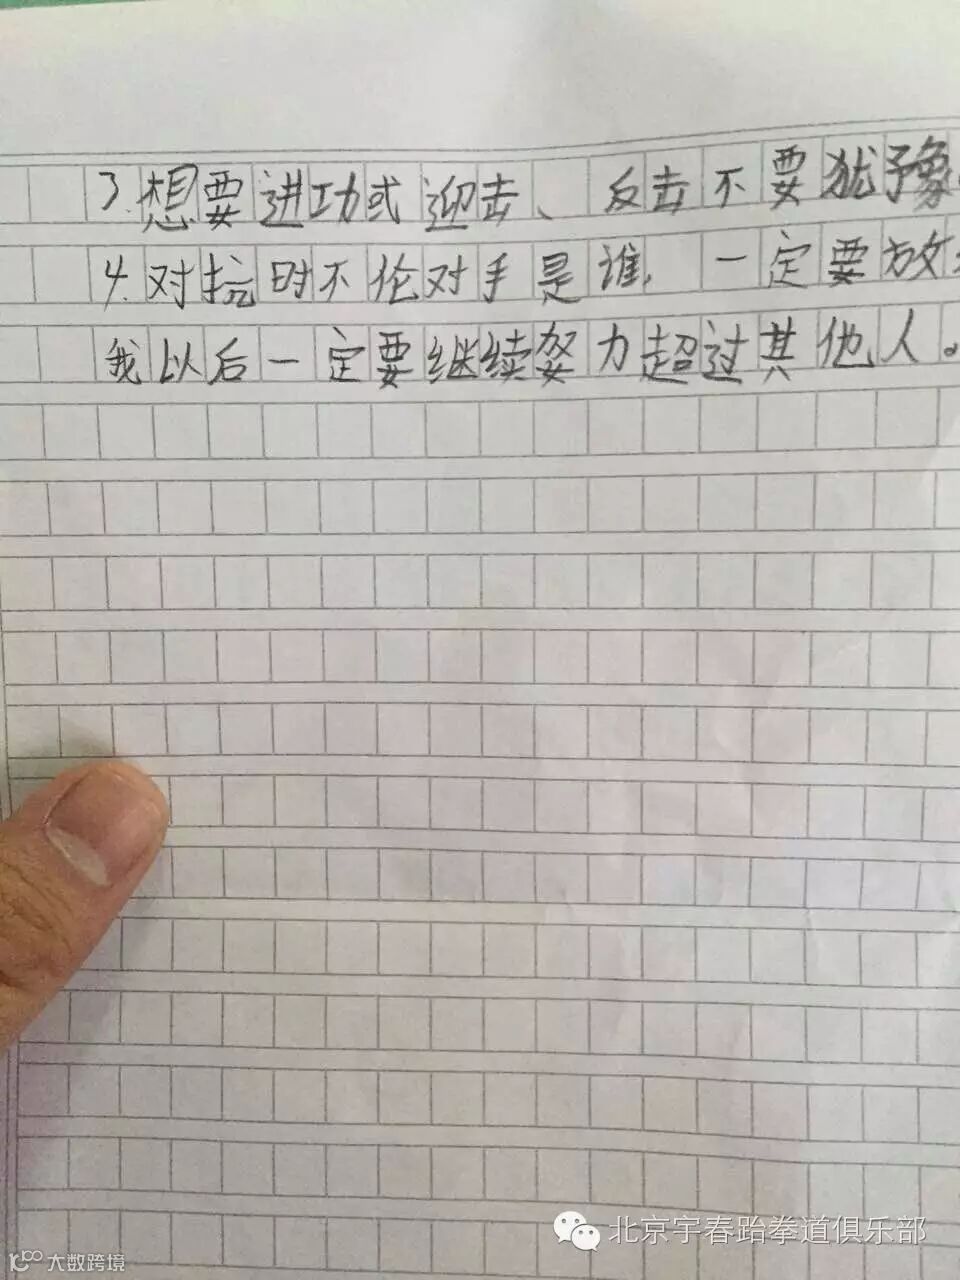 3.想要进功或迎击、反击不要犹予象
4.对抗时不伦对手是谁,一定要放
我以后一定要继续努力超过其他人。
北京宇春跆拳道俱乐部
大数跨境